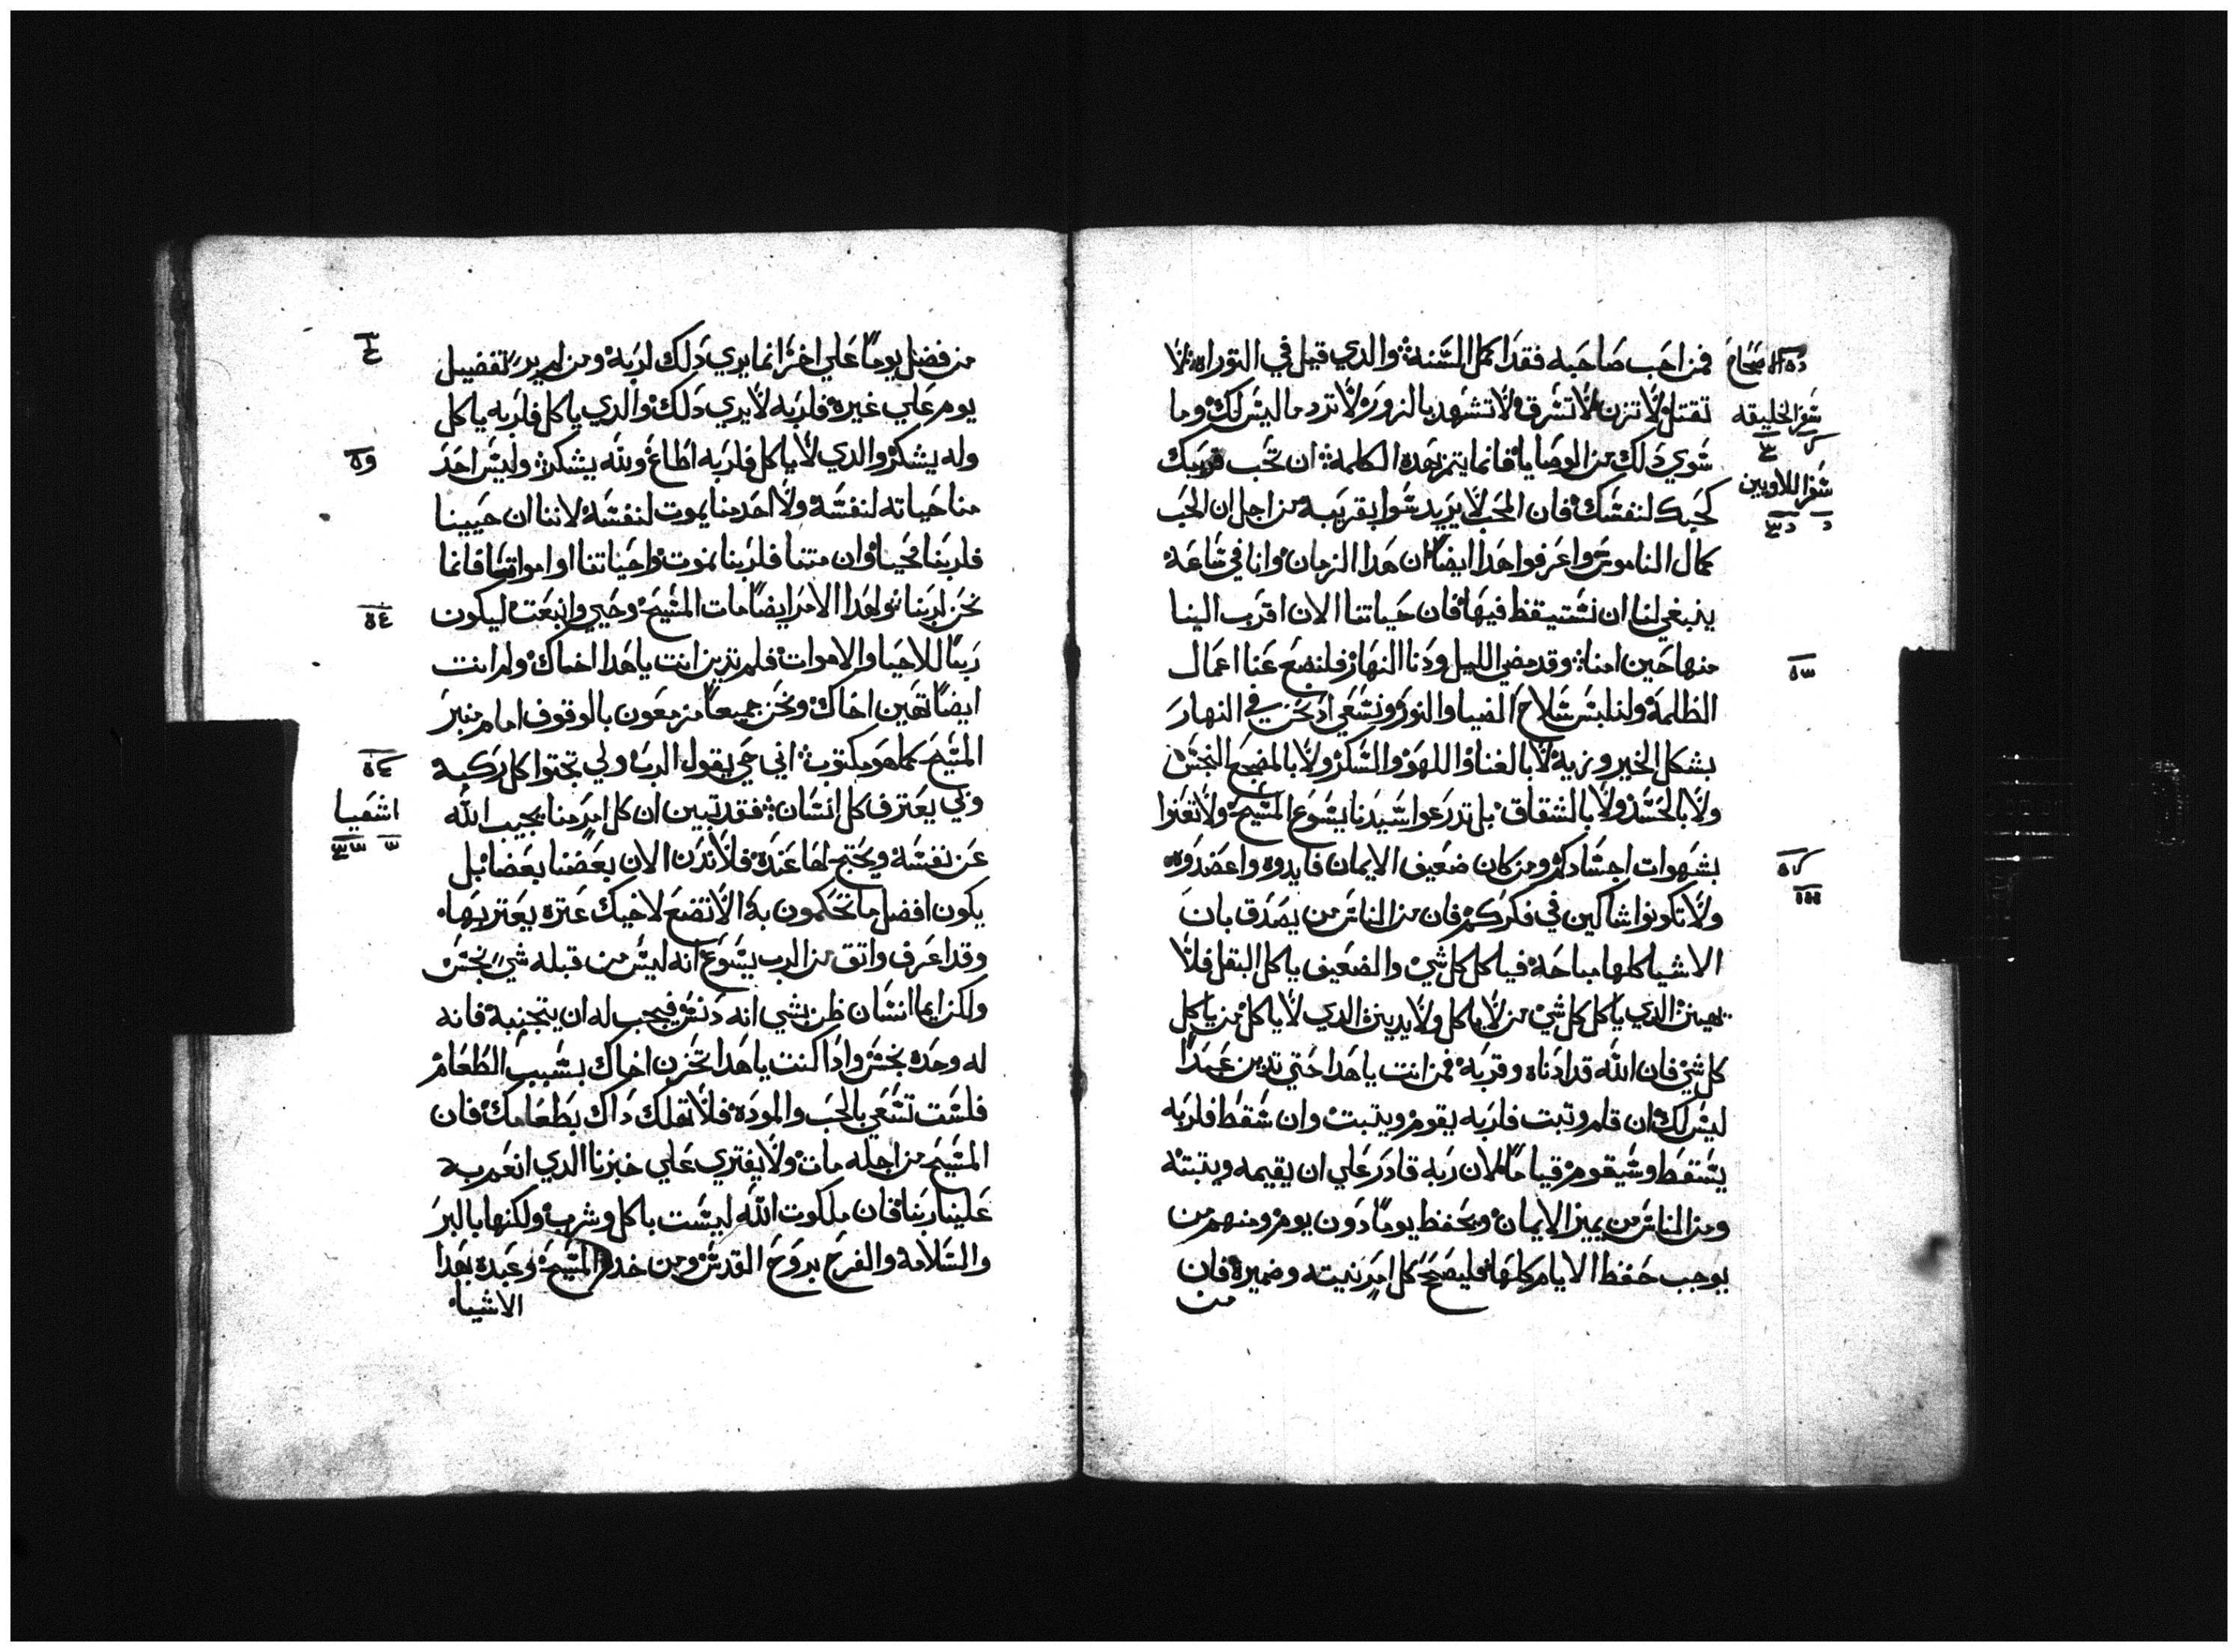 فمن احب صاحبه فقد اكمل السنة والدي قيل في التوراه لا
تقتل لا تزن لا تسرق لا تشهد بالزور لا تزد ما ليس لك وما
سوي دلك من الوصايا فانما يتم بهده الكلمة ان تحب قريبك
كحبك لنفسك فان المحب لا يريد سوا بقريبه من اجل ان الحب
كمال الناموس واعرفوا هدا ايضا ان هدا الزمان وانا في ساعة
ينبغي لنا ان نستيقظ فيها فان حياتنا الان اقرب الينا
منها حين امنا وقد مضي الليل ودنا النهار فلنضع عنا اعمال
الظلمة ولنلبس سلاح الضيا والنور ونسعي اد نحن في النهار
بشكل الخير وزيه لا بالغنا واللهو والسكر ولا بالمضجع النجس
ولا بالحسد ولا بالشقاق بل تدرعوا سيدنا يسوع المسيح ولا تغنوا
بشهوات اجسادكم ومن كان ضعيف الايمان فايدوه واعضدوه
ولا تكونوا شاكين في فكركم فان من الناس من يصدق بان
الاشيا كلها مباحة فياكل كل شي والضعيف ياكل البقل فلا
يهينن الدي ياكل كل شي من لا ياكل ولا يدينن الدي لا ياكل من ياكل
كل شي فان الله قد ادناه وقربه فمن انت يا هدا حتي تدين عبدا
ليس لك ان قام وتبت فلربه يقوم ويتبت وان سقط فلربه
يسقط وسيقوم قياما لان ربه قادر علي ان يقيمه ويتبته
ومن الناس من يميز الايمان ويحفظ يوما دون يوم ومنهم من
يوجب حفظ الايام كلها فليصحح كل امر نيته وضميره فان
من
اصحاح
سفر الخليقه
سفر اللاويين
من فضل يوما علي اخر انما يري دلك لربه ومن لم ير تفضيل
يوم علي غيره فلربه لا يري دلك والدي ياكل فلربه ياكل
وله يشكر والدي لا ياكل فلربه اطاع ولله يشكر وليس احد
منا حياته لنفسه ولا احد منا يموت لنفسه لاننا ان حيينا
فلربنا نحيا وان متنا فلربنا نموت واحياتنا او امواتنا فانما
نحن لربنا ولهدا الامر ايضا مات المسيح وحيي وانبعت ليكون
ربا للاحيا والاموات فلم تدين انت يا هدا اخاك ولم انت
ايضا تهين اخاك ونحن جميعا مزمعون بالوقوف امام منبر
المسيح كما هو مكتوب اني حي يقول الرب ولي تجتوا كل ركبة
ولي يعترف كل انسان فقد تبين ان كل امر منا يجيب الله
عن نفسه ويحتج لها عنده فلا ندن الان بعضنا بعضا بل
يكون افضل ما تحكمون به الا تضع لاخيك عترة يعتر بها
وقد اعرف واتق من الرب يسوع انه ليس من قبله شي نجس
ولكن ايما انسان ظن بشي انه دنس فيجب له ان يتجنبه فانه
له وحده نجس وادا كنت يا هدا تحزن اخاك بسبب الطعام
فلست تسعي بالحب والمودة فلا تهلك داك بطعامك فان
المسيح من اجله مات ولا يفتري علي خبزنا الدي انعم به
علينا ربنا فان ملكوت الله ليست باكل وشرب ولكنها بالبر
والسلامة والفرح بروح القدس ومن خدم المسيح وعبده بهدا
الاشيا
اشعيا